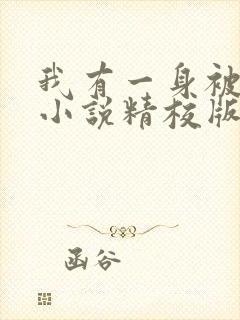 我有一身被
小说精校版
函谷